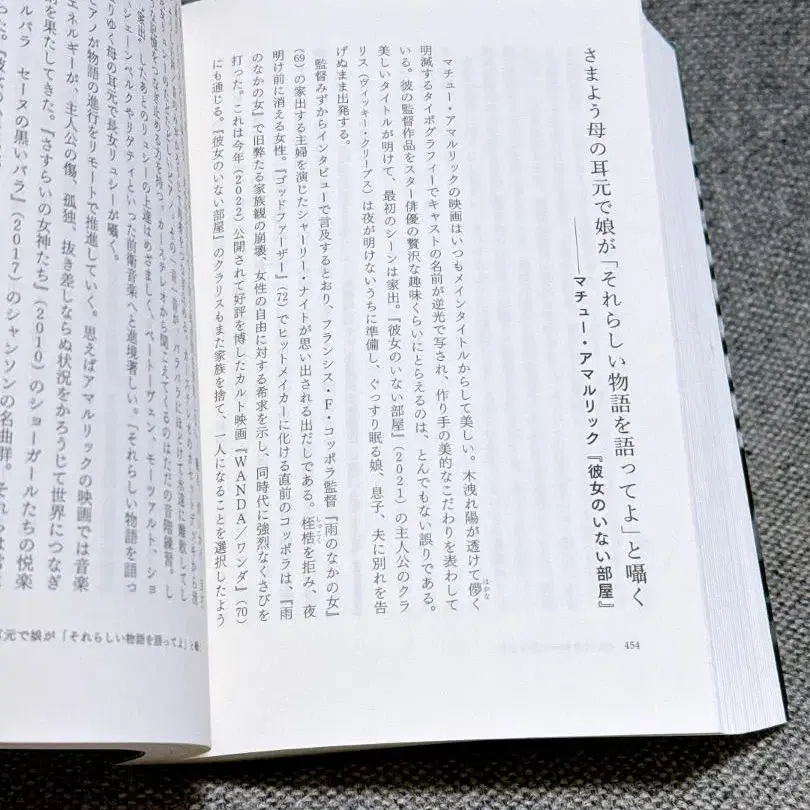 さまよう母の耳元で娘が「それらしい物語を語ってよ」と囁く
――マチュー・アマルリック『彼女のいない部屋』
マチュー・アマルリックの映画はいつもメインタイトルからして美しい。木洩れ陽が透けて儚く
はかな
明滅するタイポグラフィーでキャストの名前が逆光で写され、作り手の美的なこだわりを表わして
いる。彼の監督作品をスター俳優の贅沢な趣味くらいにとらえるのは、とんでもない誤りである。
美しいタイトルが明けて、最初のシーンは家出。『彼女のいない部屋』(2021)の主人公のクラ
リス(ヴィッキー・クリープス)は夜が明けないうちに準備し、ぐっすり眠る娘、息子、夫に別れを告
げぬまま出発する。
監督みずからインタビューで言及するとおり、フランシス・F・コッポラ監督『雨のなかの女』
(69)の家出する主婦を演じたシャーリー・ナイトが思い出される出だしである。桎梏を拒み、夜
しっこく
明け前に消える女性。『ゴッドファーザー』(72)でヒットメイカーに化ける直前のコッポラは、『雨
のなかの女』で旧弊たる家族観の崩壊、女性の自由に対する希求を示し、同時代に強烈なくさびを
打った。これは今年(2022)公開されて好評を博したカルト映画『WANDA/ワンダ』(70)
にも通じる。『彼女のいない部屋』のクラリスもまた家族を捨て、一人になることを選択したよう
454
「家出」したあとのリュシーの上達はめざましく、ベートーヴェン、モーツァルト、ショ
シェーンベルクやリゲティといった前衛音楽へと進境著しい。「それらしい物語を語っ
りゆく母の耳元で長女リュシーが囁く。
アノが物語の進行をリモートで推進していく。思えばアマルリックの映画では音楽
エネルギーが、主人公の傷、孤独、抜き差しならぬ状況をかろうじて世界につなぎ
を果たしてきた。『さすらいの女神たち』(2010)のショーガールたちの悦楽
ルバラ　セーヌの黒いバラ』(2017)のシャンソンの名曲群。
耳元で娘が「それらしい物語を語ってよ」と囁